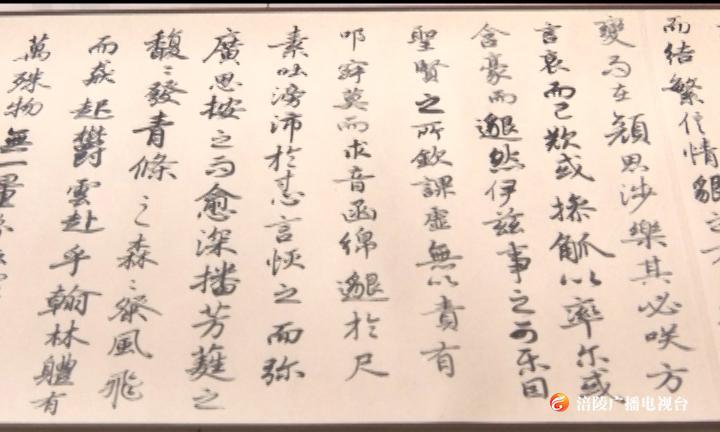 而結繁信情貌之
變而在顏思涉樂其必咲方
言哀而已歎或操觚以率尔或
含豪而邈然伊茲事之可乐固
聖賢之所欽課虛無以責有
叩寂莫而求音函綿邈於尺
素吐滂沛於寸心言恢之而弥
廣思按之而愈深播芳蕤之
馥〻發青條之森〻粲風飛
而猋起欝雲起乎翰林體有
萬殊物無一量
涪陵广播电视台